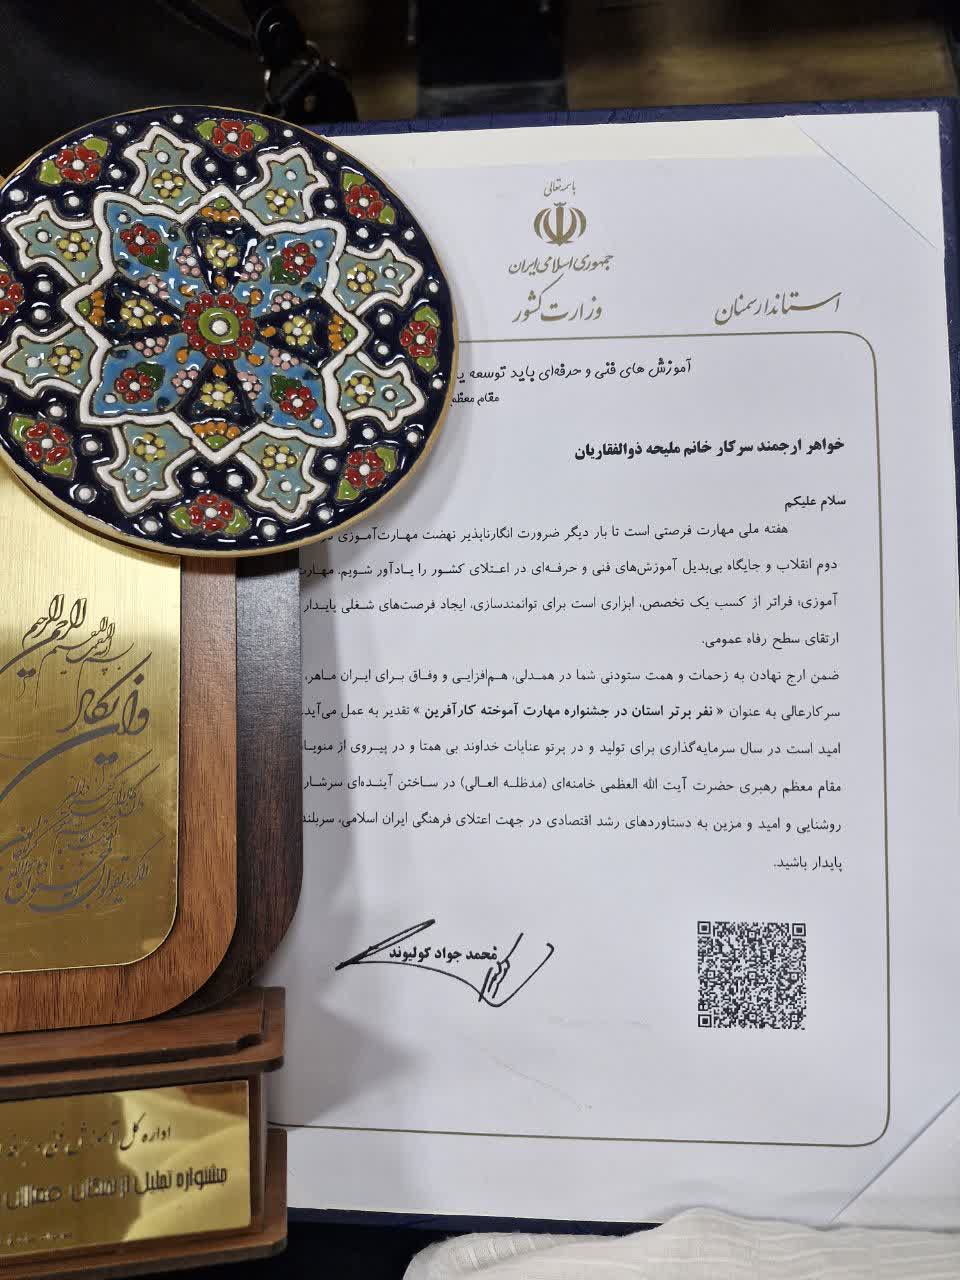 باسمه تعالی
جمهوری اسلامی ایران
وزارت کشور
استانداری سمنان
آموزش های فنی و حرفه‌ای باید توسعه
مقام معظم
خواهر ارجمند سرکار خانم ملیحه ذوالفقاریان
سلام علیکم
هفته ملی مهارت فرصتی است تا بار دیگر ضرورت انکارناپذیر نهضت مهارت‌آموزی
دوم انقلاب و جایگاه بی‌بدیل آموزش‌های فنی و حرفه‌ای در اعتلای کشور را یادآور شویم. مهارت
آموزی؛ فراتر از کسب یک تخصص، ابزاری است برای توانمندسازی، ایجاد فرصت‌های شغلی پایدار
ارتقای سطح رفاه عمومی.
ضمن ارج نهادن به زحمات و همت ستودنی شما در همدلی، هم‌افزایی و وفاق برای ایران ماهر،
سرکارعالی به عنوان « نفر برتر استان در جشنواره مهارت آموخته کارآفرین » تقدیر به عمل می‌آید.
امید است در سال سرمایه‌گذاری برای تولید و در پرتو عنایات خداوند بی همتا و در پیروی از منویات
مقام معظم رهبری حضرت آیت الله العظمی خامنه‌ای (مدظله العالی) در ساختن آینده‌ای سرشار
روشنایی و امید و مزین به دستاوردهای رشد اقتصادی در جهت اعتلای فرهنگی ایران اسلامی، سربلند
پایدار باشید.
محمد جواد کولیوند
اداره کل آموزش فنی و
جشنواره تجلیل از نخبگان